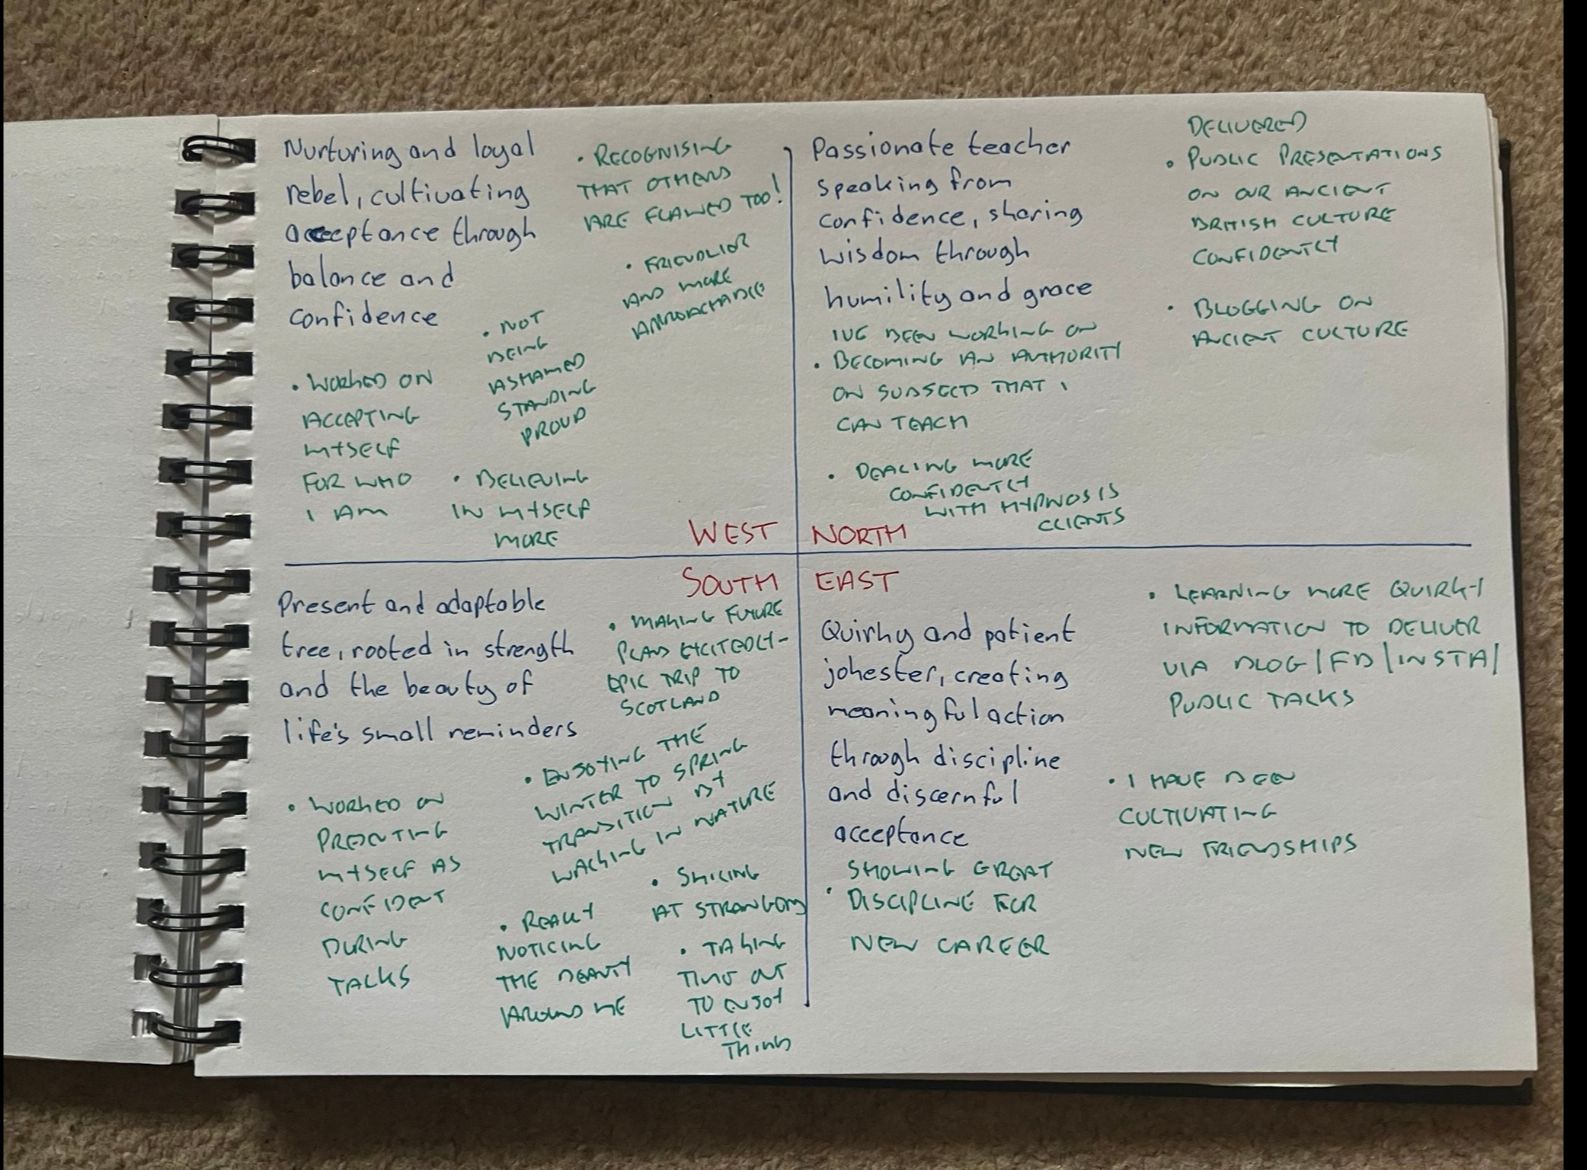 Nurturing and loyal
rebel, cultivating
acceptance through
balance and
confidence
• WORKED ON
ACCEPTING
MYSELF
FOR WHO
I AM
• NOT
BEING
ASHAMED
STANDING
PROUD
• BELIEVING
IN MYSELF
MORE
• RECOGNISING
THAT OTHERS
ARE FLAWED TOO!
• FRIENDLIER
AND MORE
APPROACHABLE
WEST
Passionate teacher
speaking from
confidence, sharing
wisdom through
humility and grace
IVE BEEN WORKING ON
• BECOMING AN AUTHORITY
ON SUBJECTS THAT I
CAN TEACH
• DEALING MORE
CONFIDENTLY
WITH HYPNOSIS
CLIENTS
DELIVERED
• PUBLIC PRESENTATIONS
ON OUR ANCIENT
BRITISH CULTURE
CONFIDENTLY
• BLOGGING ON
ANCIENT CULTURE
NORTH
SOUTH
Present and adaptable
tree, rooted in strength
and the beauty of
life's small reminders
• WORKED ON
PRESENTING
MYSELF AS
CONFIDENT
DURING
TALKS
• MAKING FUTURE
PLANS EXCITEDLY-
EPIC TRIP TO
SCOTLAND
• ENJOYING THE
WINTER TO SPRING
TRANSITION BY
WALKING IN NATURE
• REALLY
NOTICING
THE BEAUTY
AROUND ME
• SMILING
AT STRANGERS
• TAKING
TIME OUT
TO ENJOY
LITTLE
THINGS
EAST
Quirky and patient
jokester, creating
meaningful action
through discipline
and discernful
acceptance
SHOWING GREAT
• DISCIPLINE FOR
NEW CAREER
• LEARNING MORE QUIRKY
INFORMATION TO DELIVER
VIA BLOG/FB/INSTA/
PUBLIC TALKS
• I HAVE BEEN
CULTIVATING
NEW FRIENDSHIPS